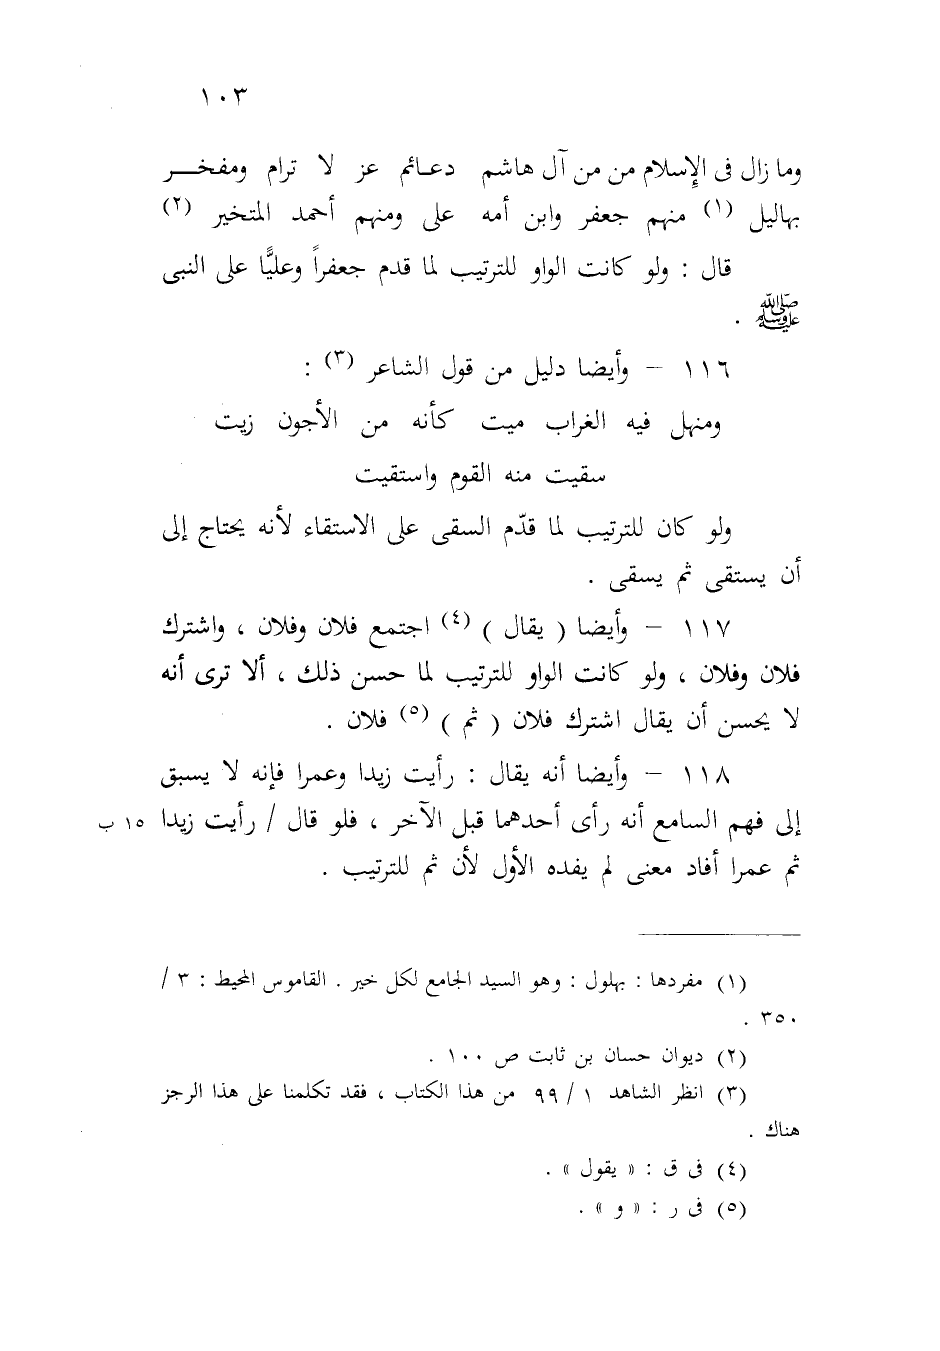 ١٠٣
وما زال فى الإسلام من من آل هاشم دعـائم عز لا ترام ومفخـــر
بهاليل (١) منهم جعفر وابن أمه على ومنهم أحمد المتخير (٢)
قال : ولو كانت الواو للترتيب لما قدم جعفراً وعليًّا على النبى
ﷺ .
١١٦ – وأيضا دليل من قول الشاعر (٣) :
ومنهل فيه الغراب ميت كأنه من الأجون زيت
سقيت منه القوم واستقيت
ولو كان للترتيب لما قدّم السقى على الاستقاء لأنه يحتاج إلى
أن يستقى ثم يسقى .
١١٧ – وأيضا ( يقال ) (٤) اجتمع فلان وفلان ، واشترك
فلان وفلان ، ولو كانت الواو للترتيب لما حسن ذلك ، ألا ترى أنه
لا يحسن أن يقال اشترك فلان ( ثم ) (٥) فلان .
١١٨ – وأيضا أنه يقال : رأيت زيدا وعمرا فإنه لا يسبق
إلى فهم السامع أنه رأى أحدهما قبل الآخر ، فلو قال / رأيت زيدا ١٥ ب
ثم عمرا أفاد معنى لم يفده الأول لأن ثم للترتيب .
(١) مفردها : بهلول : وهو السيد الجامع لكل خير . القاموس المحيط : ٣ /
٣٥٠ .
(٢) ديوان حسان بن ثابت ص ١٠٠ .
(٣) انظر الشاهد ١ / ٩٩ من هذا الكتاب ، فقد تكلمنا على هذا الرجز
هناك .
(٤) فى ق : « يقول » .
(٥) فى ر : « و » .